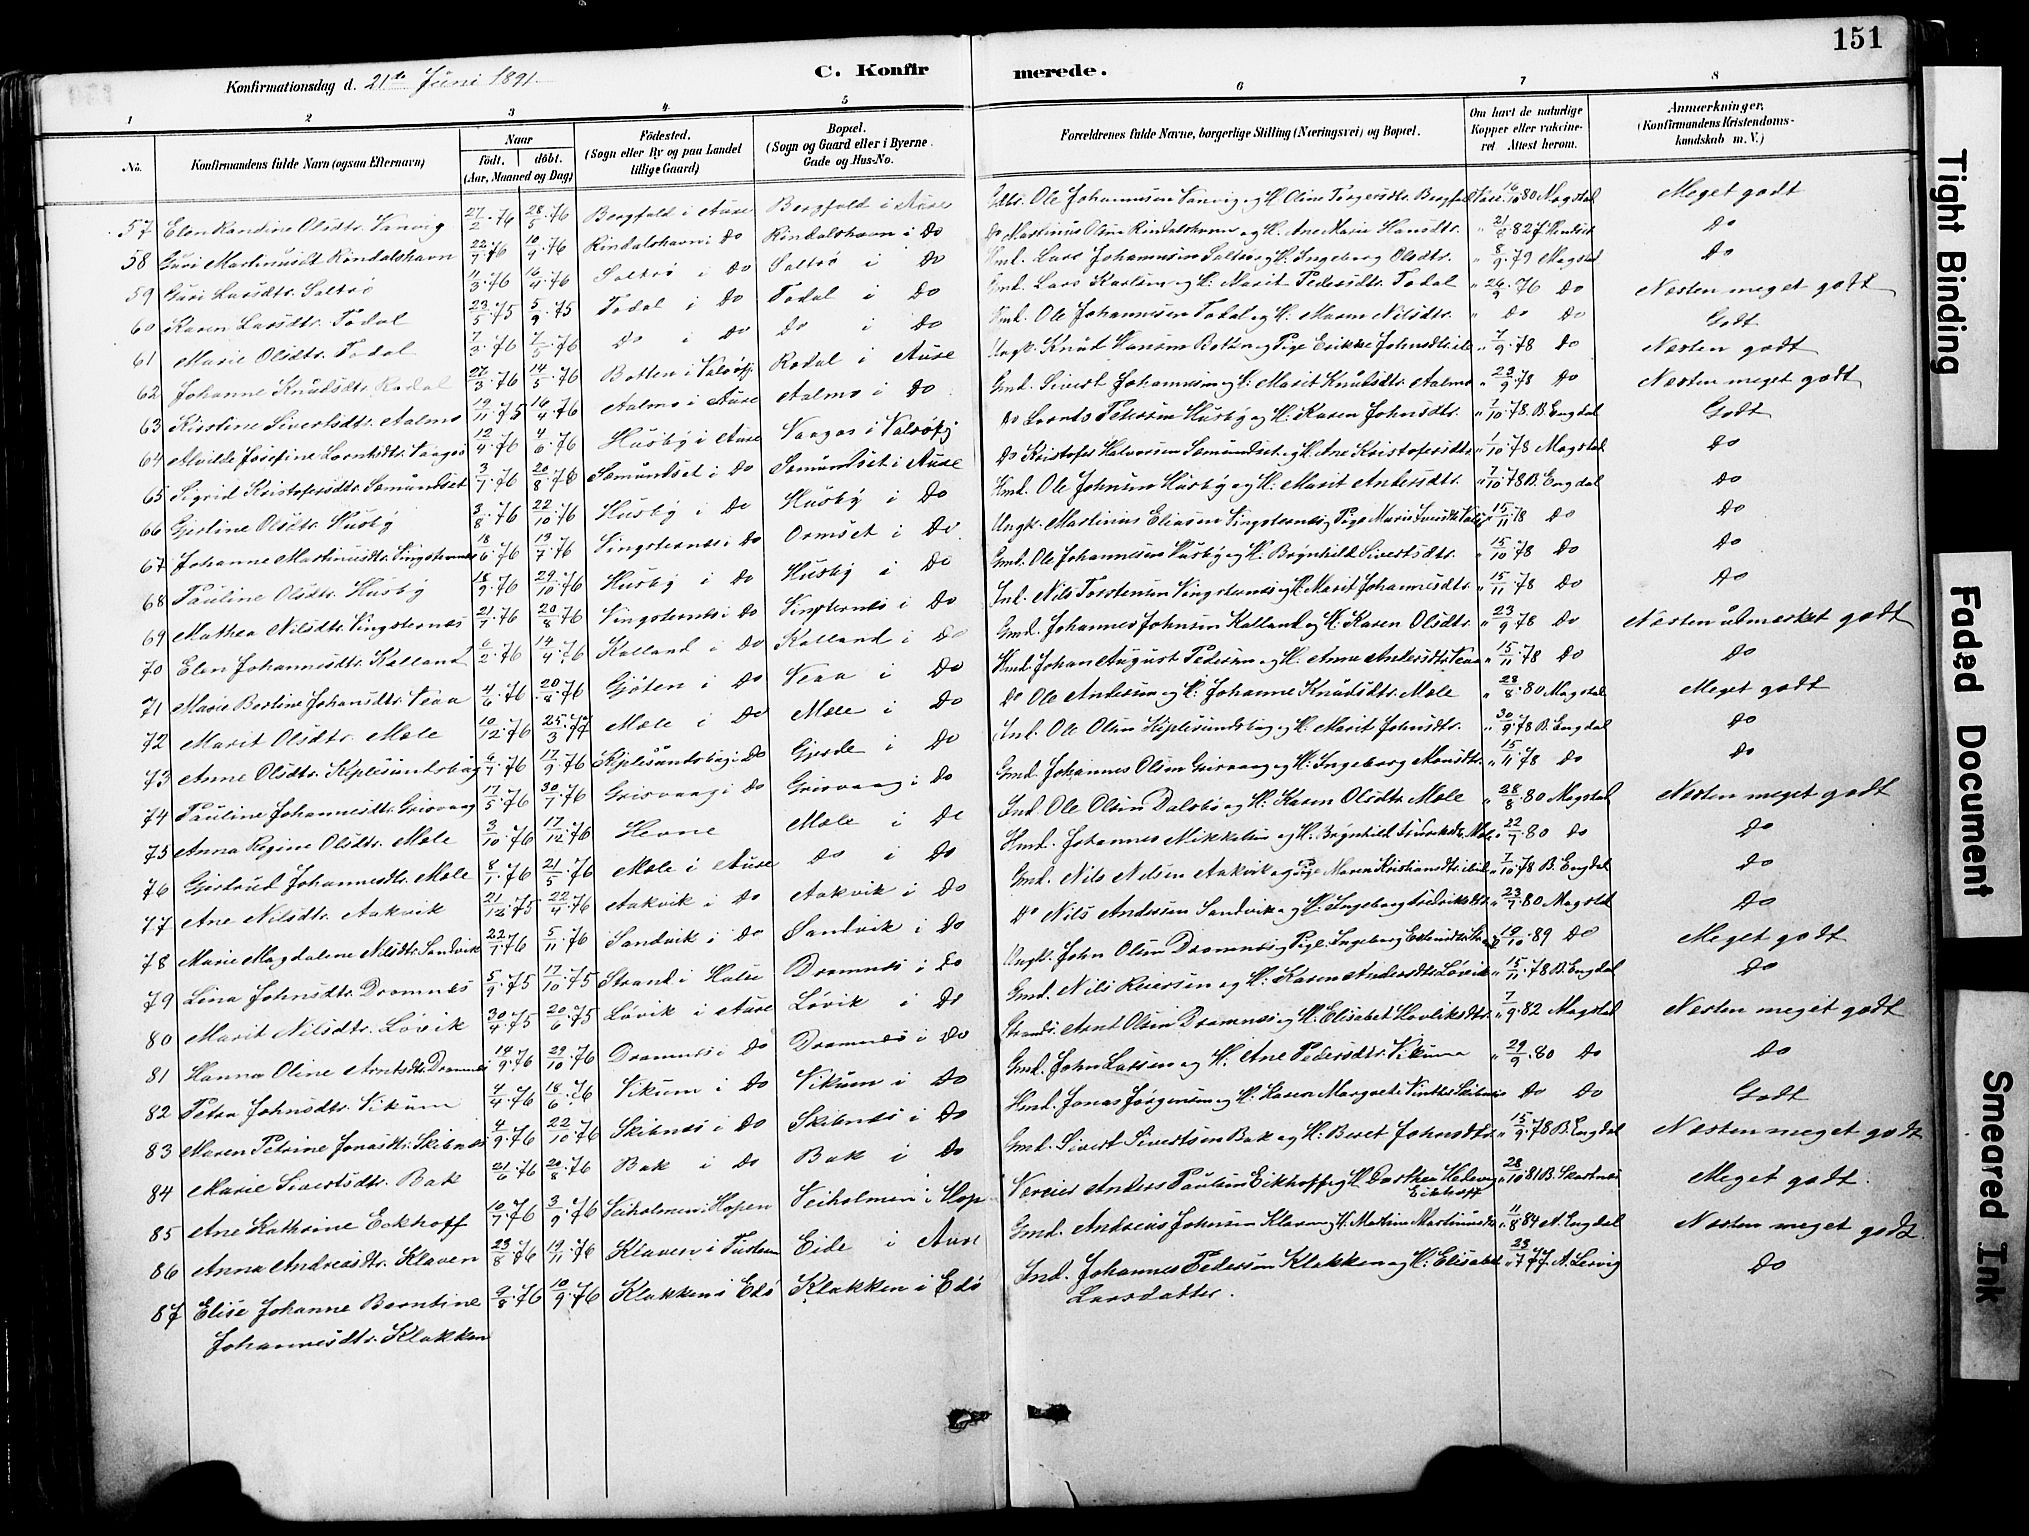 151
Konfirmationsdag d. 21de Juni 1891.
C. Konfirmerede.
1 2 3 4 5 6 7 8
No.
Konfirmandens fulde Navn (ogsaa Efternavn)
Naar
født, døbt.
(Aar, Maaned og Dag)
Födested.
(Sogn eller By og paa Landet tillige Gaard)
Bopæl.
(Sogn og Gaard eller i Byerne Gade og Hus-No.
Forældrenes fulde Navne, borgerlige Stilling (Næringsvei) og Bopæl.
Om havt de naturlige Kopper eller vakcineret Attest herom.
Anmærkninger.
(Konfirmandens Kristendomskundskab m. V.)
57 Elen Randine Olsdtr. Vanvig 27/2 76 28/5 76 Bergfald i Aure Bergfald i Aure Ole Johannesen Vanvig og H. Oline Torgersdtr. 16/10 80 Magstad Meget godt
58 Guri Martinusdt Rindalshavn 22/7 76 10/9 76 Rindalshavn i Do Rindalshavn i Do Do Martinus Olsen Rindalshavn og H. Ane Marie Hansdtr. Do
59 Guri Larsdtr. Saltrø 11/3 76 16/4 76 Saltrø i Do Saltrø i Do Lars Johannesen Saltrø og H. Ingeborg Olsdtr. " 8/9 79 Magstad Do
60 Karen Larsdtr. Todal 23/5 75 5/9 75 Todal i Do Todal i Do Gmd. Lars Karlsen og H. Marit Pedersdtr. Todal " 24/9 76 Do Næsten meget godt
61 Marie Olsdtr. Todal 7/3 76 7/5 76 Do i Do Do i Do Ole Johannesen Todal og H. Maren Nilsdtr. " Do Do Godt
62 Johanne Knudsdtr. Rodal 27/3 76 14/5 76 Botten i Valsøfj. Rodal i Aure Ungk. Knud Hansen Botten og Pige Erikke Johnsdtr. " 7/9 78 Do Næsten godt
63 Kirstine Sivertsdtr. Aalmo 19/11 75 16/4 76 Aalmo i Aure Aalmo i Do Gmd. Sivert Johannesen og H. Marit Knudsdtr. Aalmo " 23/9 78 Do Næsten meget godt
64 Alvilde Josefine Berntsdtr. Vaagos 12/4 76 4/6 76 Husby i Aure Vaagos i Valsøfj Do Berndt Petersen Husby og H. Karen Johnsdtr. " 7/10 78. B. Engdal Godt
65 Sigrid Kristofersdtr. Semundset 3/7 76 20/8 76 Semundset i Do Semundset i Aure Do Kristofer Halvorsen Semundset og H. Ane Kristofersdtr. " 1/10 78 Magstad Do
66 Gjertine Olsdtr. Husby 3/8 76 22/10 76 Husby i Do Husby i Do Ole Johnsen Husby og H. Marit Andersdtr. " 7/10 78 B. Engdal Do
67 Johanne Martinusdtr. Vingsternes 18/6 76 19/7 76 Vingsternes i Do Ormset i Do Ungk. Martinus Eliasen Vingsternes og Pige Marit " 15/11 78 Do Do
68 Pauline Olsdtr. Husby 18/9 76 29/10 76 Husby i Do Husby i Do Gmd. Ole Johannesen Husby og H. Brynhild Sivertsdtr. " 15/10 78 Do Do
69 Mathea Nilsdtr. Vingsternes 21/7 76 20/8 76 Vingsternes i Do Vingsternes i Do Ind. Nils Torstensen Vingsternes og H. Marit Johannesdtr. " 15/11 78 Do Do
70 Elen Johannesdtr. Kalland 6/2 76 14/4 76 Kalland i Do Kalland i Do Gmd. Johannes Johnsen Kalland og H. Karen Olsdtr. " 23/9 78 Do Næsten udmærket godt
71 Marie Bertine Johansdtr. Veaa 4/6 76 20/8 76 Gjøten i Do Veaa i Do Johan August Pedersen og H. Anne Andersdtr. Veaa " 15/11 78 Do Do
72 Marit Olsdtr. Mæle 10/12 76 25/3 77 Mæle i Do Mæle i Do Do Ole Andersen og H. Johanne Knudsdtr. Mæle " 28/8 80 Magstad Meget godt
73 Anne Olsdtr. Kiplesundsbug 6/7 76 17/9 76 Kiplesundsbug i Do Gjerde i Do Ind. Ole Olsen Kiplesundsbug og H. Marit Johnsdtr. " 30/9 78 B. Engdal Do
74 Pauline Johannesdtr. Grisvaag 17/5 76 30/7 76 Grisvaag i Do Grisvaag i Do Gmd. Johannes Olsen Grisvaag og H. Ingeborg Monsdtr. " 15/11 78 Do Do
75 Anna Regine Olsdtr. Mæle 3/10 76 17/12 76 Hevne Mæle i Do Ind. Ole Olsen Dalsbø og H. Karen Olsdtr. Mæle " 28/8 80 Magstad Næsten meget godt
76 Gjertrud Johannesdtr. Mæle 8/1 76 21/5 76 Mæle i Aure Do i Do Johannes Mikkelsen og H. Brynhild Sivertsdtr. Mæle " 22/7 80 Do Do
77 Ane Nilsdtr. Aakvik 21/12 75 22/4 76 Aakvik i Do Aakvik i Do Gmd. Nils Nilsen Aakvik og Pige Maren Kristiansdtr. " 7/10 78 B. Engdal Do
78 Marie Magdalene Nilsdtr. Sandvik 22/7 76 5/11 76 Sandvik i Do Sandvik i Do Do Nils Andersen Sandvik og H. Ingeborg Fredriksdtr. " 23/7 80 Magstad Do
79 Lina Johnsdtr. Dromnes 5/9 75 17/10 75 Strand i Halse Dromnes i Do Ungk. John Olsen Dromnes og Pige Ingeborg 19/10 89 Do Meget godt
80 Marit Nilsdtr. Løvik 30/4 75 20/6 75 Løvik i Aure Løvik i Do Gmd. Nils Reiersen og H. Karen Andersdtr. Løvik " 15/11 78 B. Engdal Do
81 Hanna Oline Arntsdtr. Dromnes 14/9 76 29/10 76 Dromnes i Do Dromnes i Do Strands. Arnt Olsen Dromnes og H. Elisabet " 7/9 82 Magstad Næsten meget godt
82 Petra Johnsdtr. Vikum 4/4 76 18/6 76 Vikum i Do Vikum i Do Gmd. John Larsen og H. Ane Pedersdtr. Vikum " 29/9 80 Do Do
83 Maren Petrine Jonasdtr. Skibnes 4/9 76 22/10 76 Skibnes i Do Skibnes i Do Jonas Jørgensen og H. Karen Margrete Do Do Godt
84 Marie Sivertsdtr. Bak 21/6 76 20/8 76 Bak i Do Bak i Do Gmd. Sivert Sivertsen Bak og H. Beret Johnsdtr. " 15/9 78 B. Engdal Næsten meget godt
85 Ane Kathrine Eckhoff 10/7 76 3/9 76 Veiholmen i Hopen Veiholmen i Hop Anders Paulsen Eckhoff og H. Dorthea Eckhoff " 28/10 81 B. Meget godt.
86 Anna Andreasdtr. Klaven 23/8 76 19/11 76 Klaven i Tustern Eide i Aure Gmd. Andreas Johnsen Klaven og H. Martine Martinusdtr. " 11/8 84 N. Engdal Næsten meget godt.
87 Elise Johanne Berntine Johannesdtr. Klakken 9/8 76 10/9 76 Klakken i Edø Klakken i Edø Ind. Johannes Pedersen Klakken og H. Elisabet Larsdatter. " 23/7 77 A. Do
Tight Binding
Faded Document
Smeared Ink